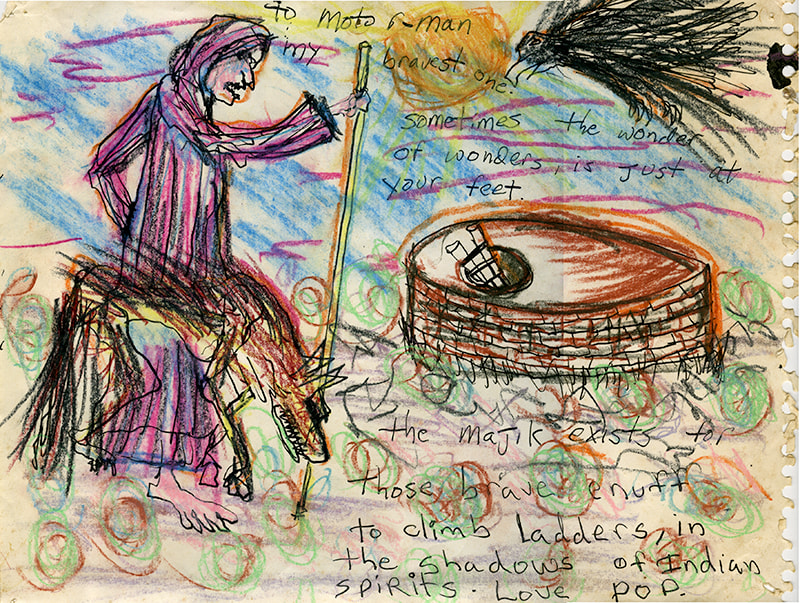 to motor-man
my bravest one.
sometimes the wonder
of wonders, is just at
your feet.
the majik exists for
those, brave enuff
to climb Ladders, in
the shadows of Indian
spirits. Love pop.